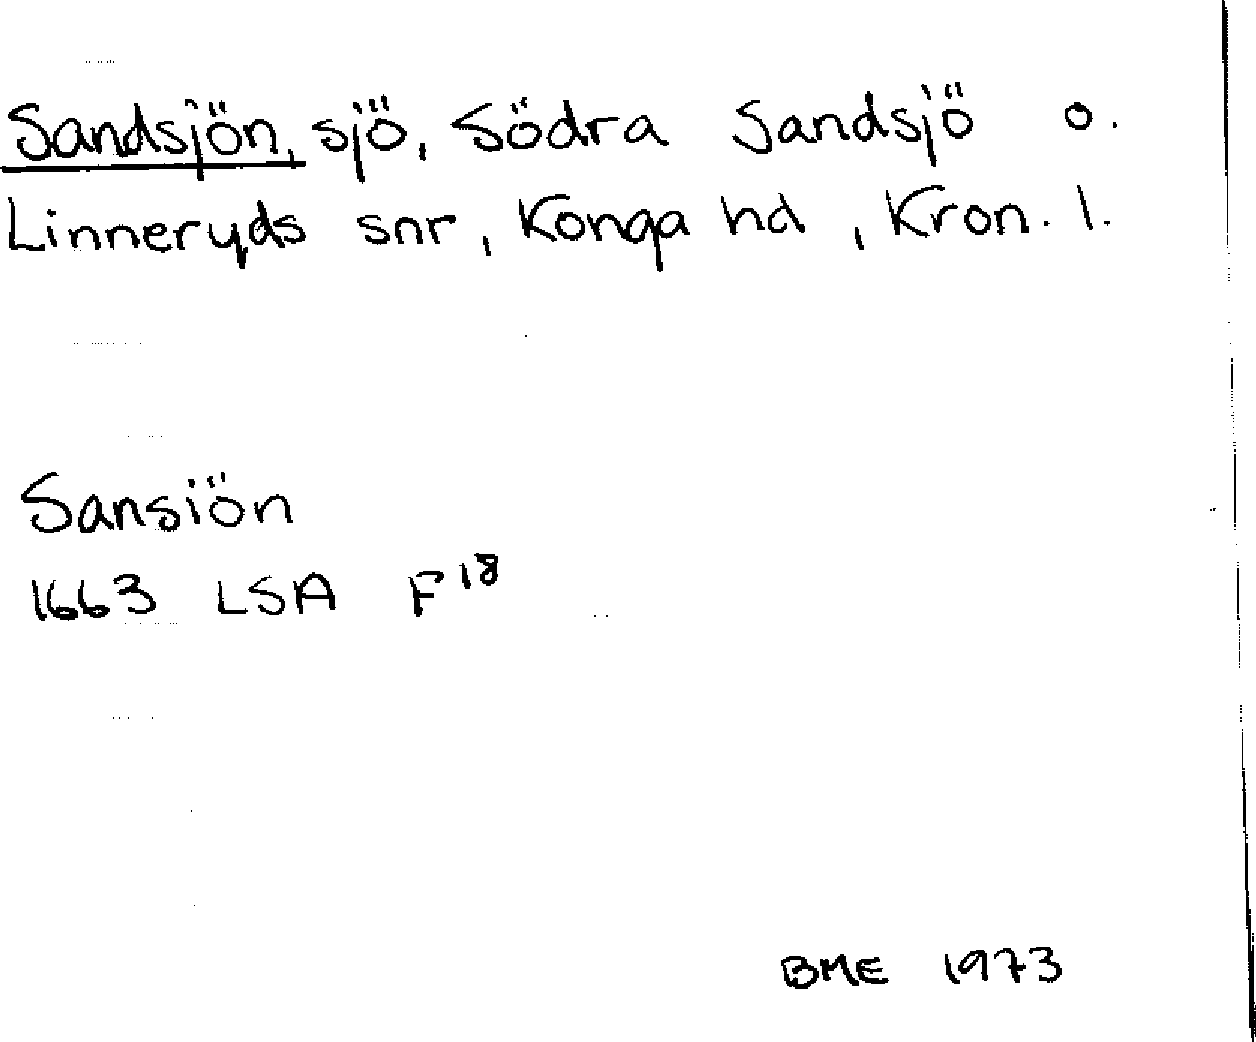 Sandsjön, sjö, Södra Sandsjö o.
Linneryds snr, Konga hd, Kron. l.
Sansiön
1663 LSA F18
BME 1973